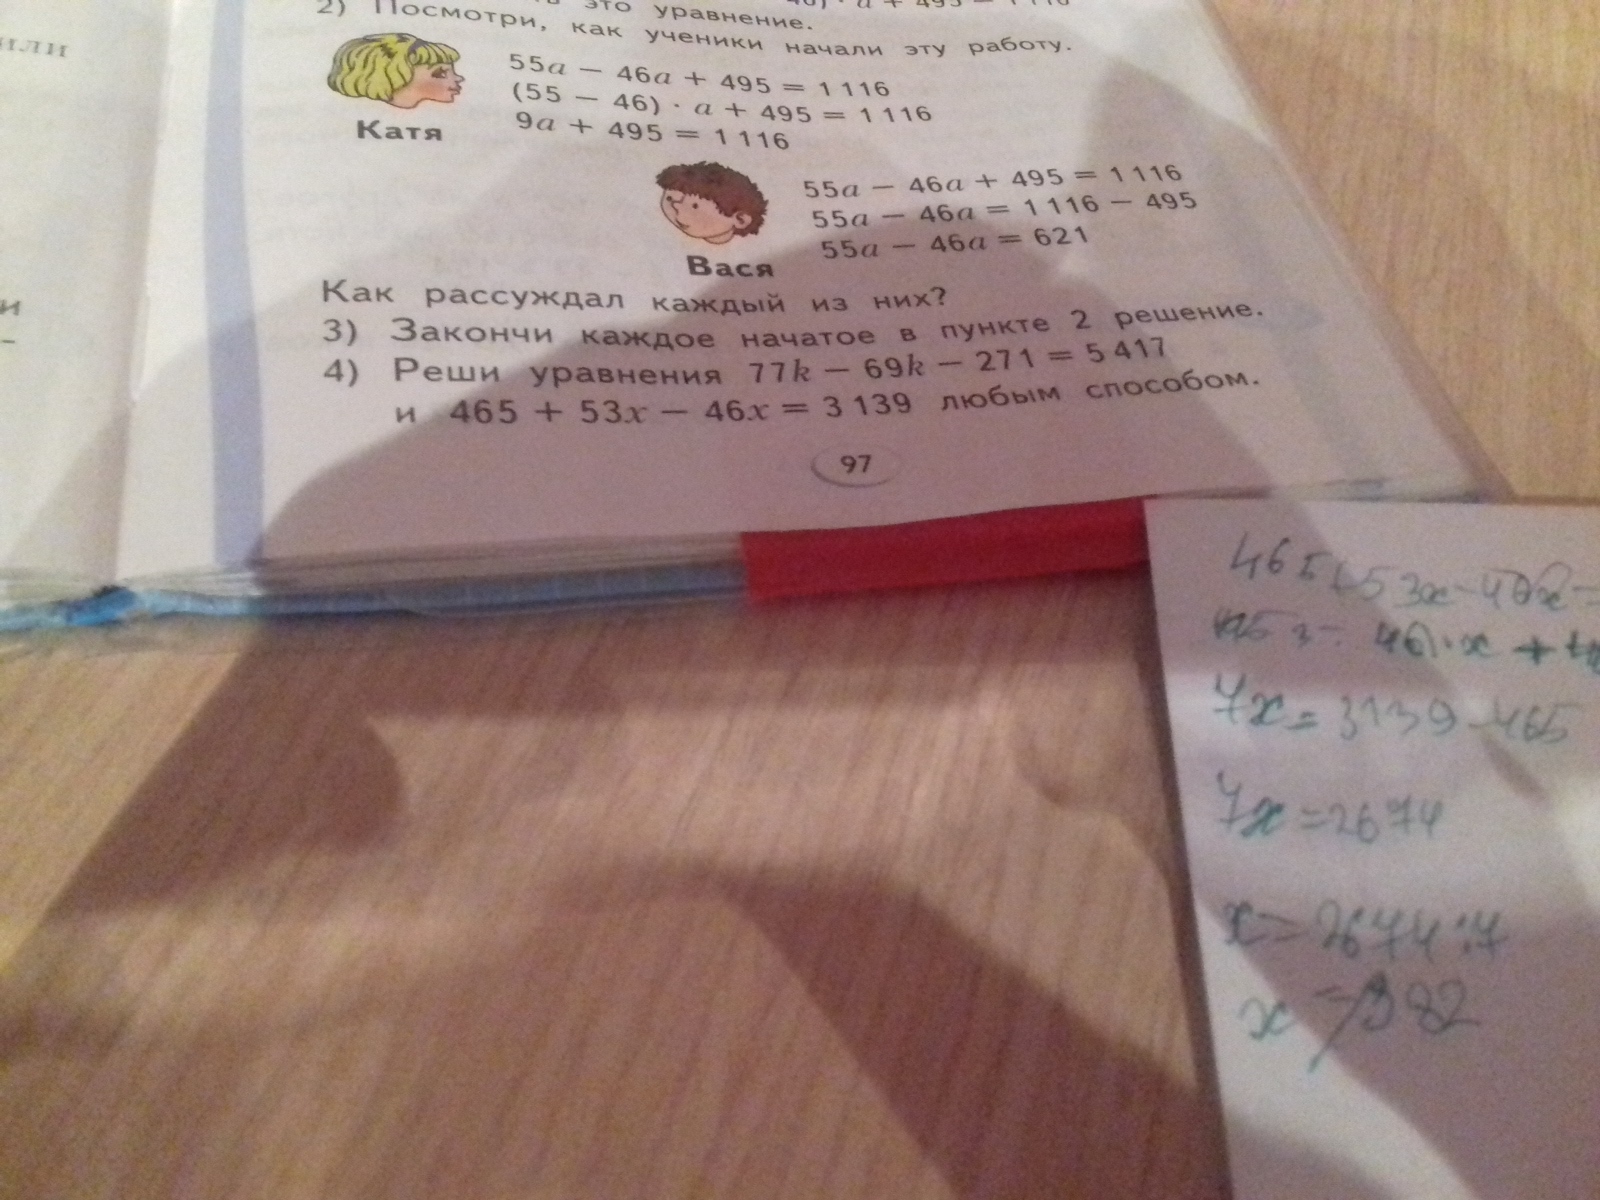 или
и
–
это уравнение.
2) Посмотри, как ученики начали эту работу.
55a − 46a + 495 = 1 116
(55 − 46) · a + 495 = 1 116
9a + 495 = 1 116
Катя
55a − 46a + 495 = 1 116
55a − 46a = 1 116 − 495
55a − 46a = 621
Вася
Как рассуждал каждый из них?
3) Закончи каждое начатое в пункте 2 решение.
4) Реши уравнения 77k − 69k − 271 = 5 417
и 465 + 53x − 46x = 3 139 любым способом.
97
465+53x-46x=
46)·x +
7x=3139-465
7x=2674
x=2674:7
x=382